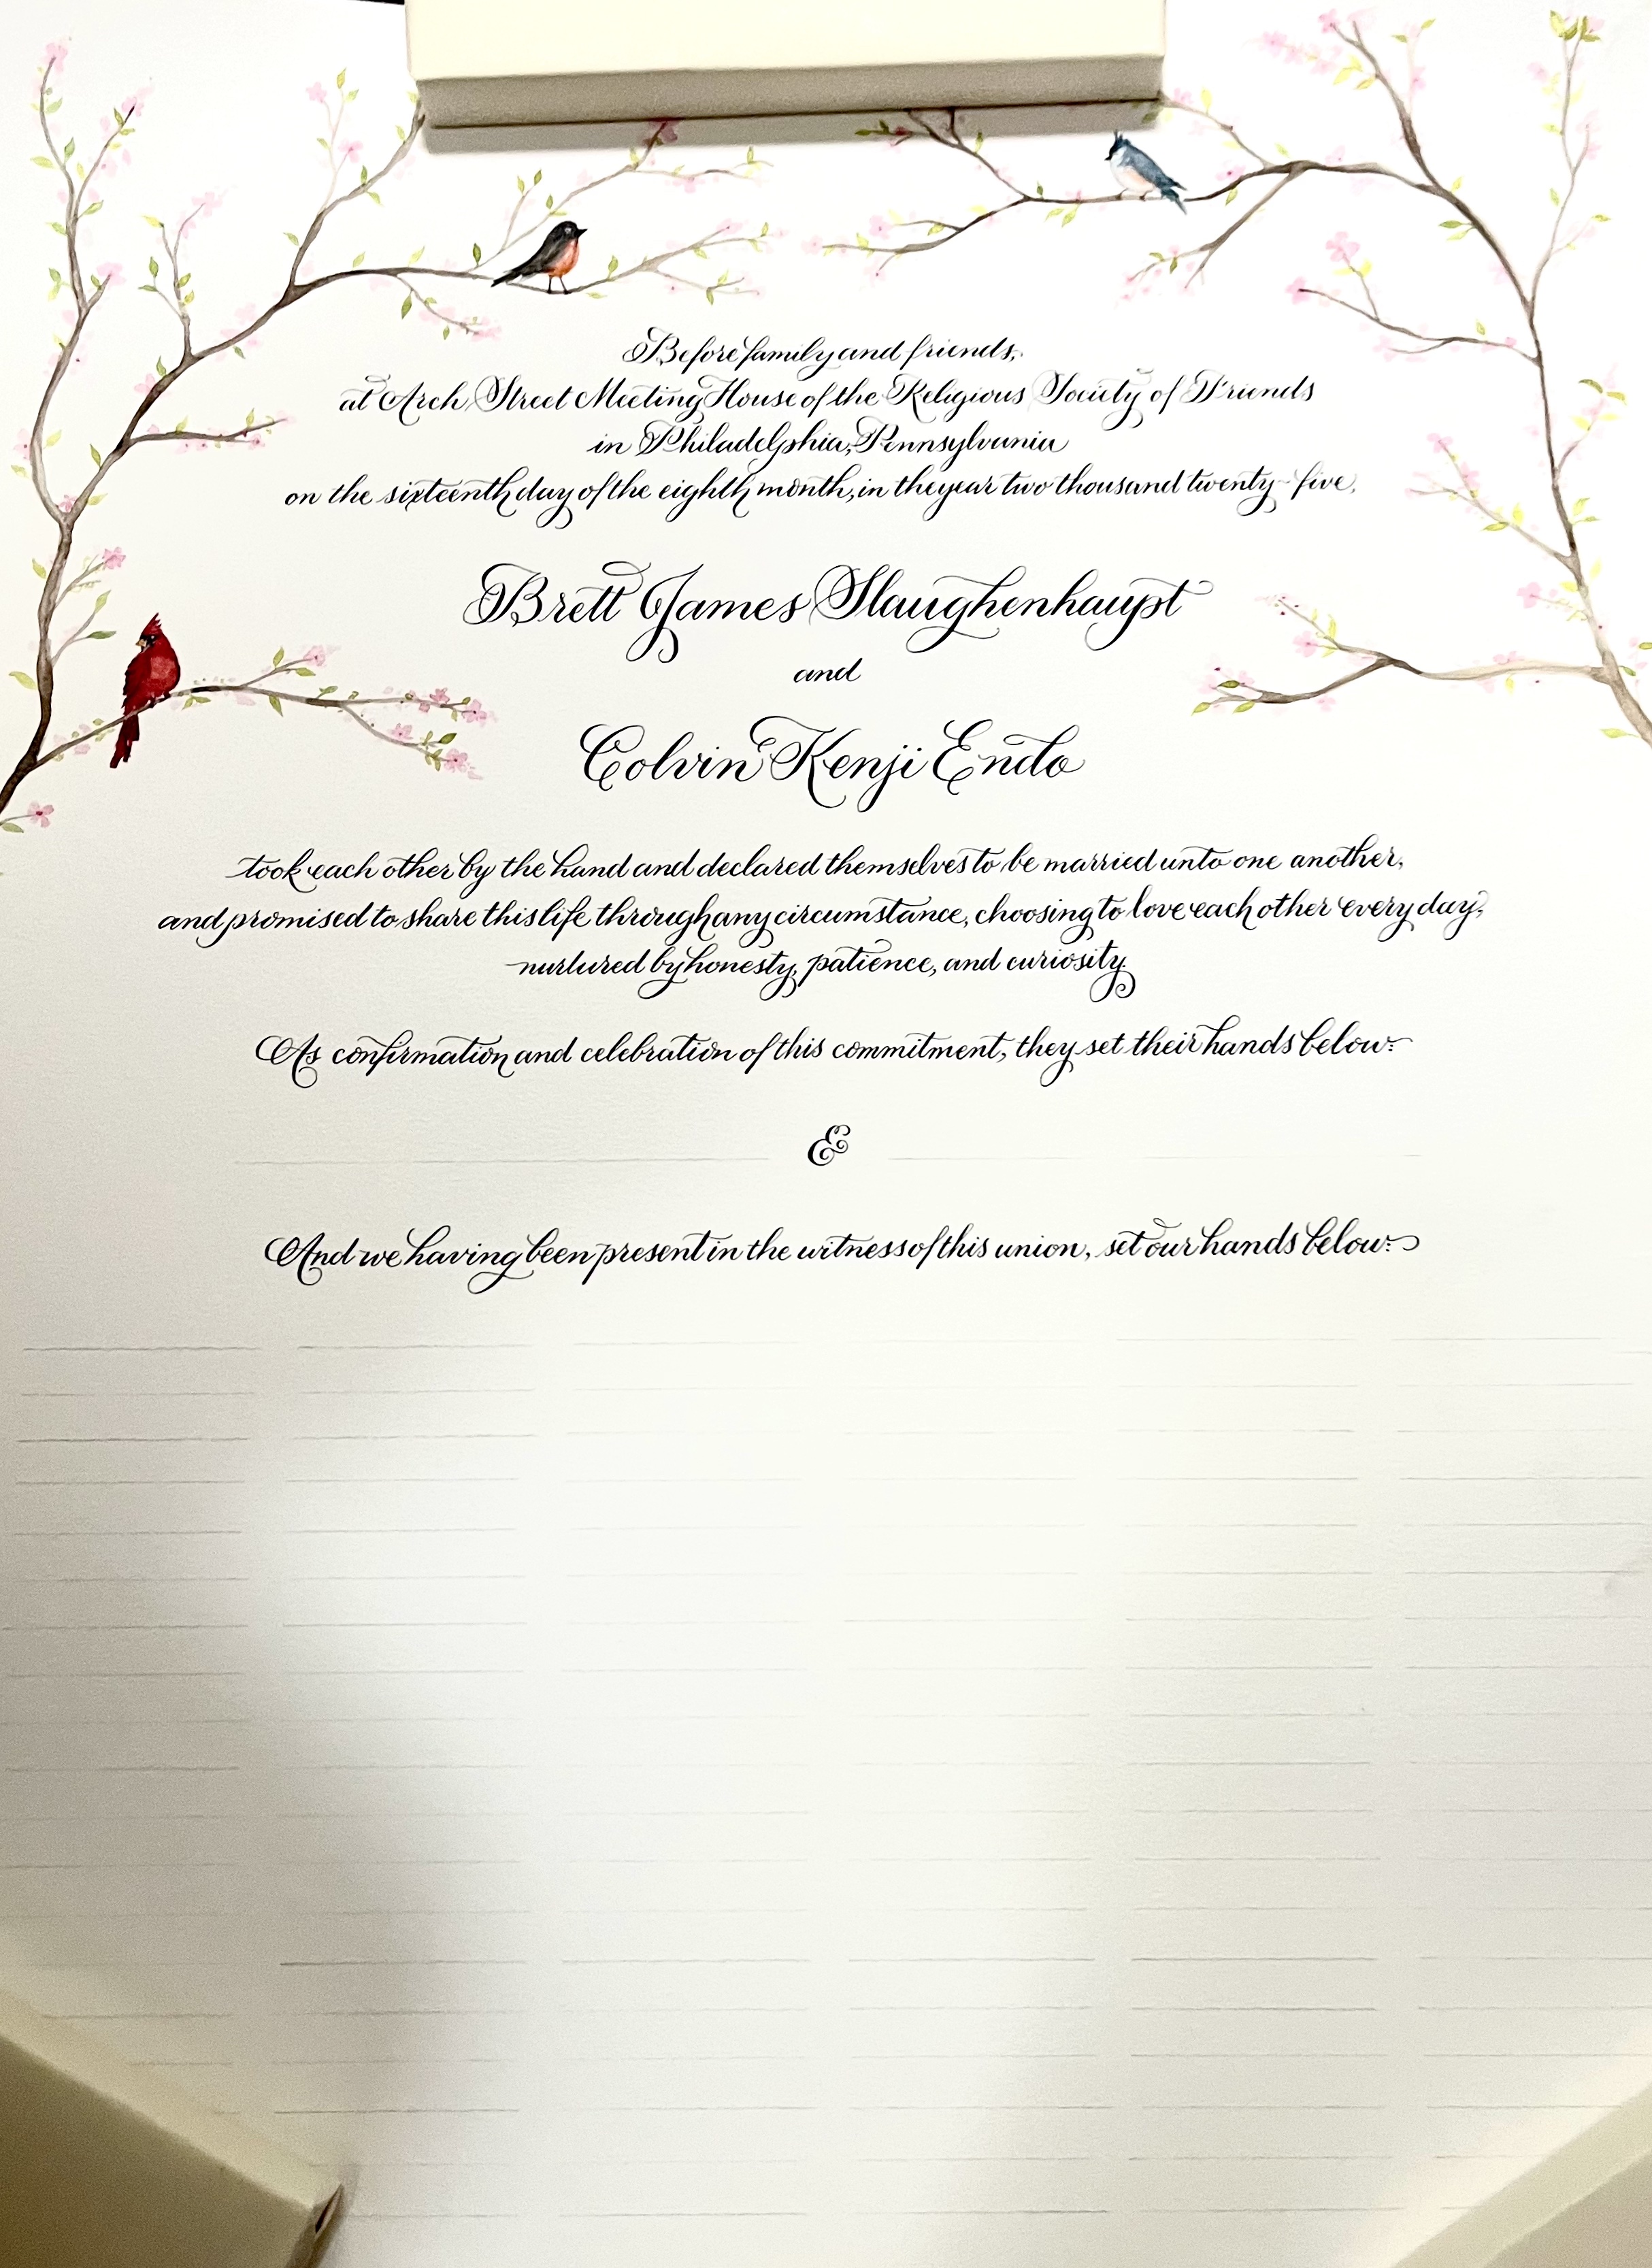 Before family and friends,
at Arch Street Meeting House of the Religious Society of Friends
in Philadelphia, Pennsylvania
on the sixteenth day of the eighth month, in the year two thousand twenty-five,
Brett James Slaughenhaupt
and
Colvin Kenji Endo
took each other by the hand and declared themselves to be married unto one another,
and promised to share this life through any circumstance, choosing to love each other every day,
nurtured by honesty, patience, and curiosity.
As confirmation and celebration of this commitment, they set their hands below:
&
And we having been present in the witness of this union, set our hands below: